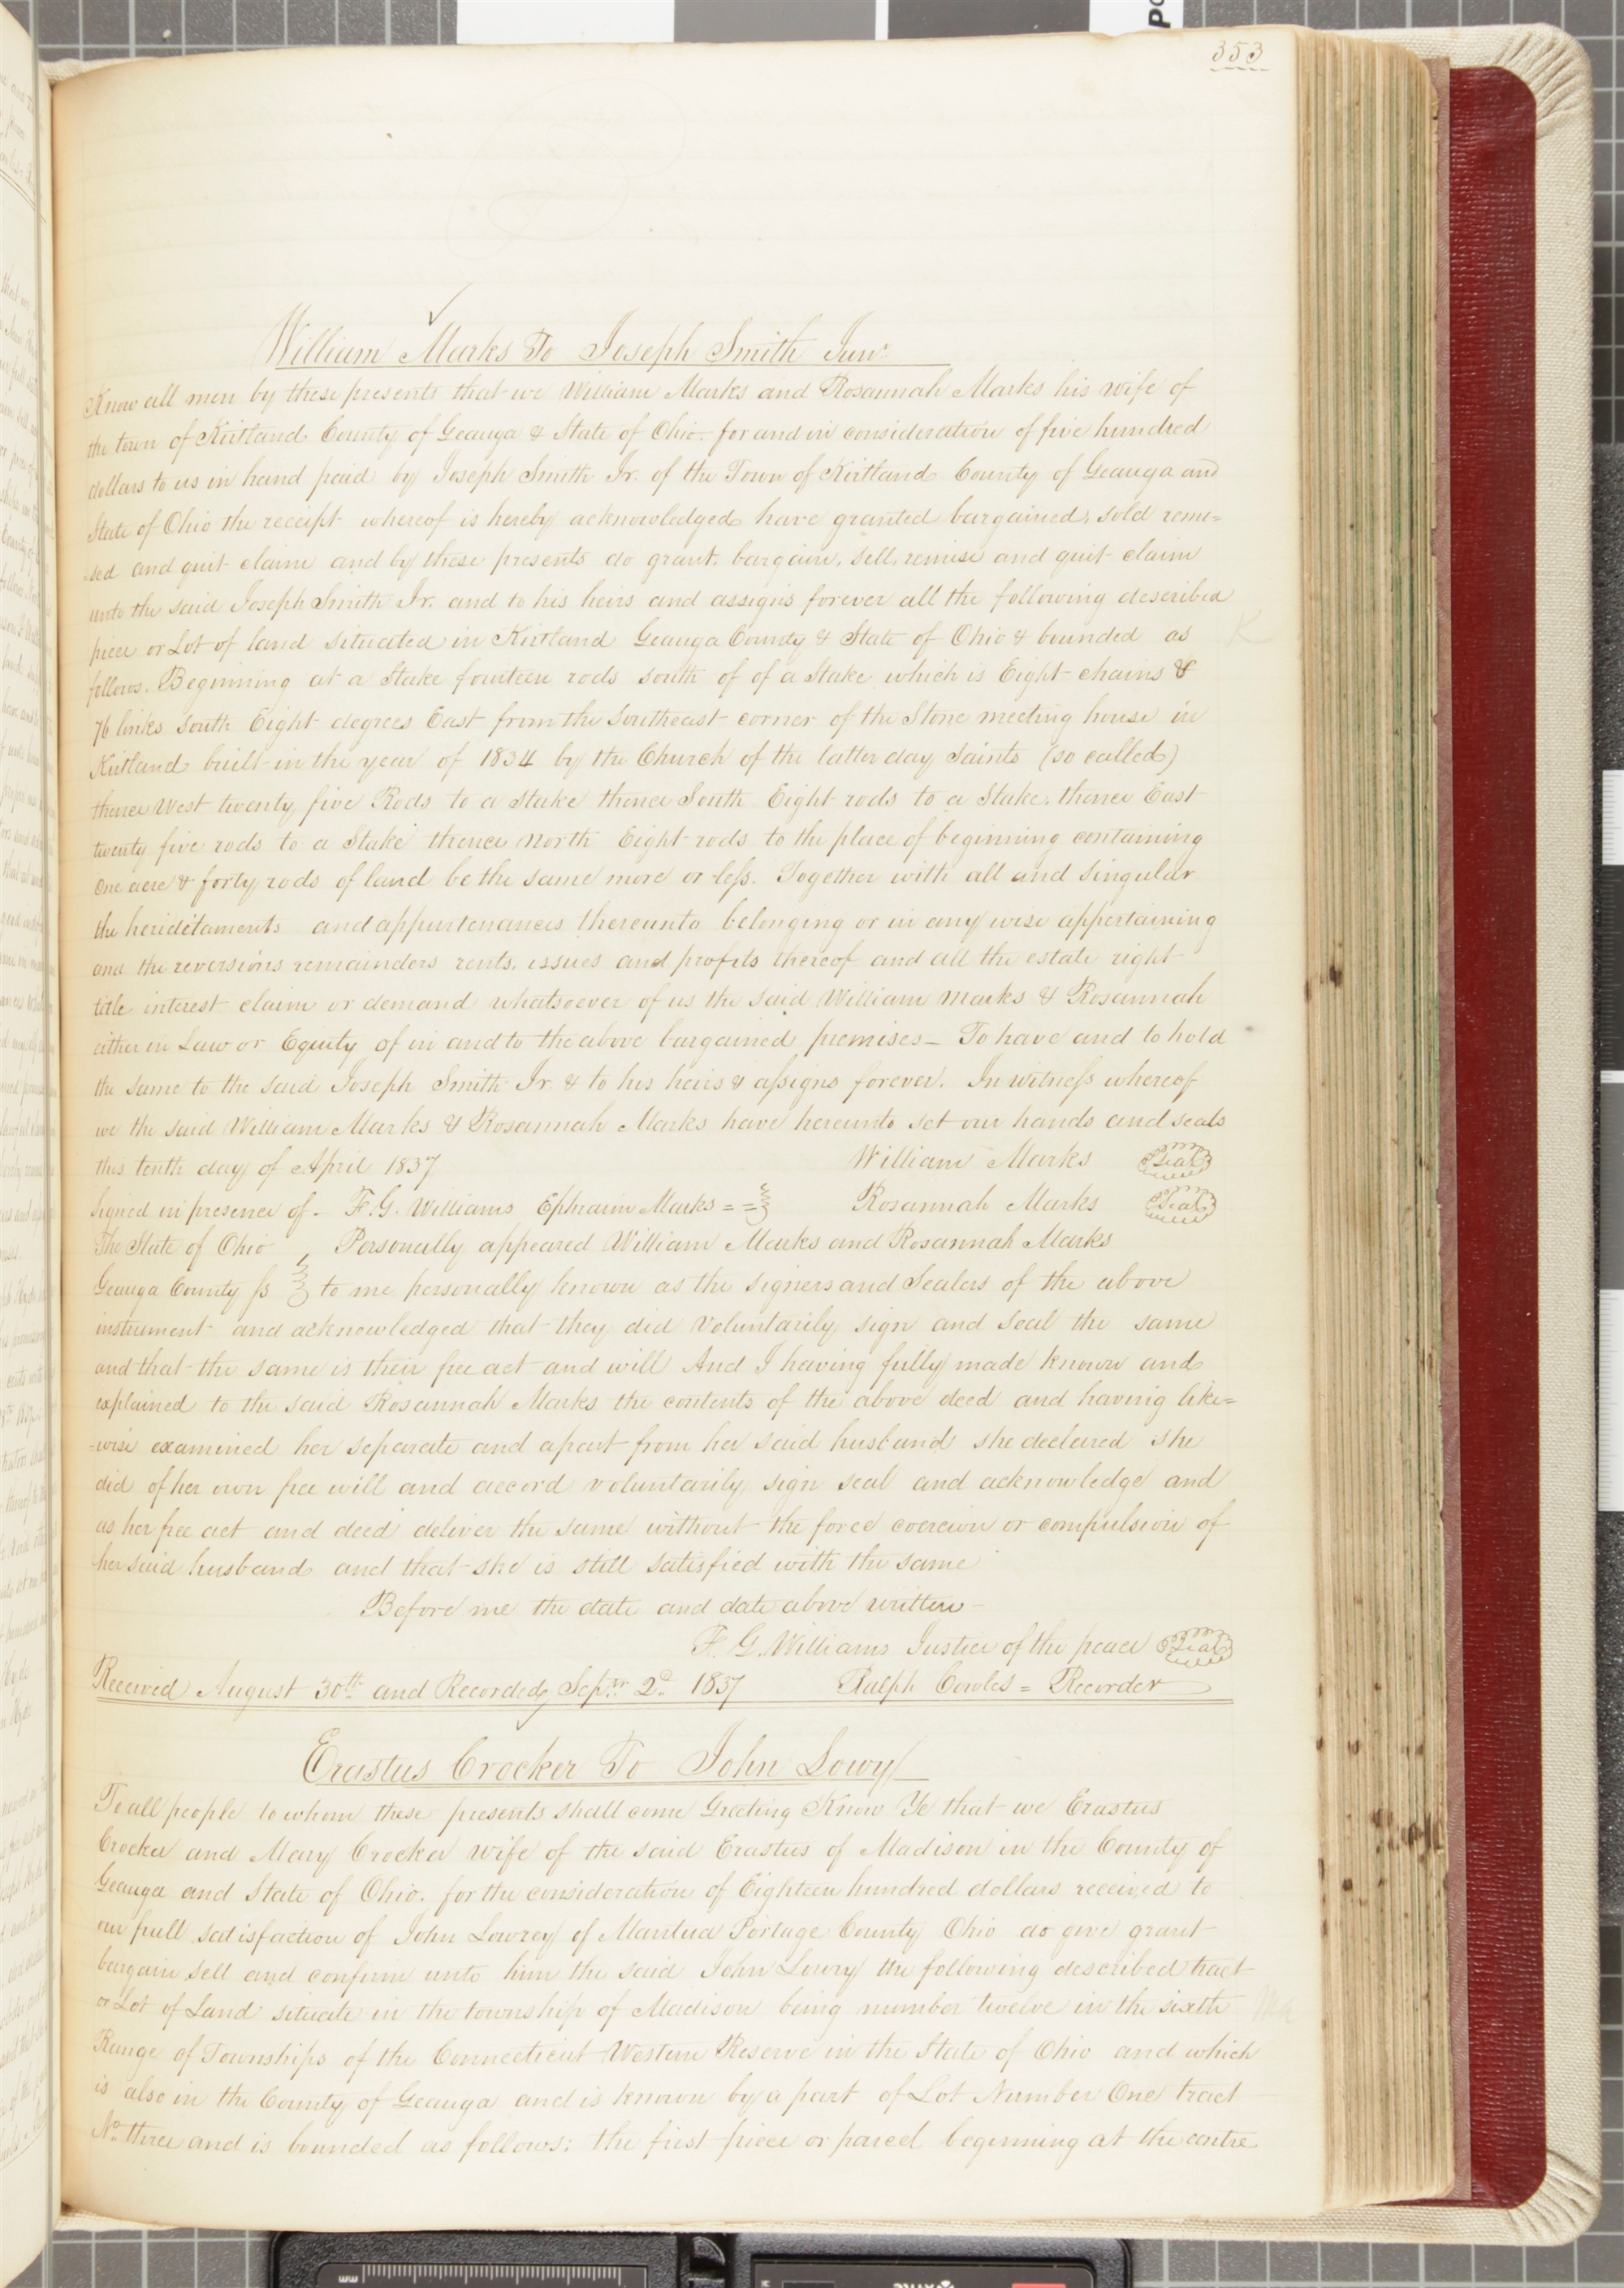 353
William Marks To Joseph Smith Junr.
Know all men by these presents that we William Marks and Rosannah Marks his wife of
the town of Kirtland County of Geauga & State of Ohio. for and in consideration of five hundred
dollars to us in hand paid by Joseph Smith Jr. of the Town of Kirtland County of Geauga and
State of Ohio the receipt whereof is hereby acknowledged have granted bargained, sold remi=
sed and quit claim and by these presents do grant, bargain, sell, remise and quit claim
unto the said Joseph Smith Jr. and to his heirs and assigns forever all the following described
piece or Lot of land situated in Kirtland Geauga County & State of Ohio & bounded as
K
follows. Beginning at a Stake fourteen rods south of of a Stake which is Eight chains &
76 links South Eight degrees East from the Southeast corner of the Stone meeting house in
Kirtland built in the year of 1834 by the Church of the latter day Saints (so called)
thence West twenty five Rods to a stake thence South Eight rods to a Stake, thence East
twenty five rods to a Stake thence north Eight rods to the place of beginning containing
One acre & forty rods of land be the same more or less. Together with all and singular
the heriditaments and appurtenances thereunto belonging or in any wise appertaining
and the reversions remainders rents, issues and profits thereof and all the estate right
title interest claim or demand whatsoever of us the said William Marks & Rosannah
either in Law or Equity of in and to the above bargained premises— To have and to hold
the same to the said Joseph Smith Jr & to his heirs & assigns forever. In witness whereof
we the said William Marks & Rosannah Marks have hereunto set our hands and seals
this tenth day of April 1837 William Marks Seal
Signed in presence of— F. G. Williams Ephraim Marks = = Rosannah Marks Seal
The State of Ohio Personally appeared William Marks and Rosannah Marks
Geauga County ss to me personally known as the signers and Sealers of the above
instrument and acknowledged that they did Voluntarily sign and Seal the same
and that the same is their free act and will And I having fully made known and
explained to the said Rosannah Marks the contents of the above deed and having like=
=wise examined her separate and apart from her said husband she declared she
did of her own free will and accord voluntarily sign seal and acknowledge and
as her free act and deed deliver the same without the force coercion or compulsion of
her said husband and that she is still satisfied with the same
Before me the date and date above written—
F. G. Williams Justice of the peace Seal
Received August 30th. and Recorded Sepr. 2d. 1837 Ralph Cowles = Recorder
Erastus Crocker To John Lowry
To all people to whom these presents shall come Greeting Know Ye that we Erastus
Crocker and Mary Crocker wife of the said Erastus of Madison in the County of
Geauga and State of Ohio. for the consideration of Eighteen hundred dollars received to
our full satisfaction of John Lowrey of Mantua Portage County Ohio do give grant
bargain sell and confirm unto him the said John Lowry the following described tract
or Lot of Land situate in the township of Madison being number twelve in the sixth
Range of Townships of the Connecticut Western Reserve in the State of Ohio and which
is also in the County of Geauga and is known by a part of Lot Number One tract
No. three and is bounded as follows: the first piece or parcel beginning at the centre